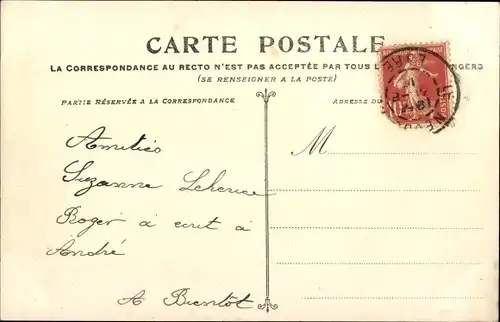 CARTE POSTALE
LA CORRESPONDANCE AU RECTO N'EST PAS ACCEPTÉE PAR TOUS
(SE RENSEIGNER A LA POSTE)
PARTIE RÉSERVÉE A LA CORRESPONDANCE
ADRESSE DU
10
Amitiés
Suzanne
Roger à écrit à
André
A Bientôt
M